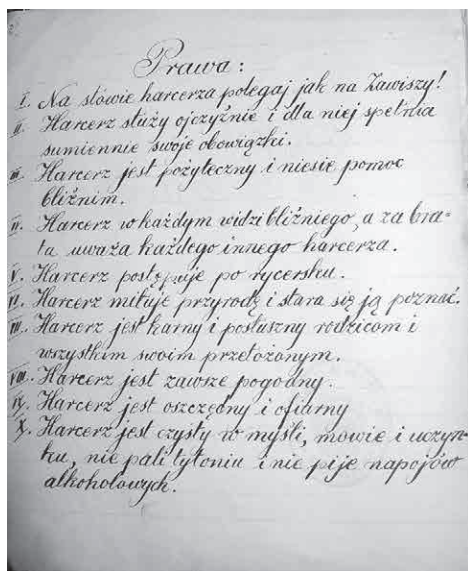 Prawa:
I. Na słowie harcerza polegaj jak na Zawiszy!
II. Harcerz służy ojczyźnie i dla niej spełnia
sumiennie swoje obowiązki.
III. Harcerz jest pożyteczny i niesie pomoc
bliźnim.
IV. Harcerz w każdym widzi bliźniego, a za bra-
ta uważa każdego innego harcerza.
V. Harcerz postępuje po rycersku.
VI. Harcerz miłuje przyrodę i stara się ją poznać.
VII. Harcerz jest karny i posłuszny rodzicom i
wszystkim swoim przełożonym.
VIII. Harcerz jest zawsze pogodny.
IX. Harcerz jest oszczędny i ofiarny
X. Harcerz jest czysty w myśli, mowie i uczyn-
ku, nie pali tytoniu i nie pije napojów
alkoholowych.